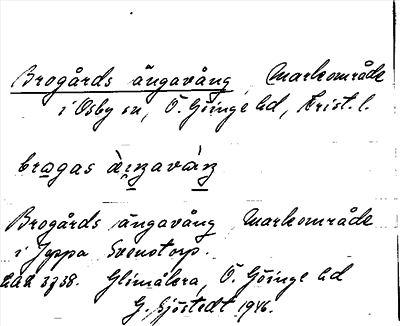 Brogårds ängavång, Markområde
i Osby sn, Ö. Göinge hd, Krist. l.
Brogårds ängavång Markområde
i Jeppa Svenstorp.
Glimåkra, Ö. Göinge hd
G. Sjöstedt 1946.